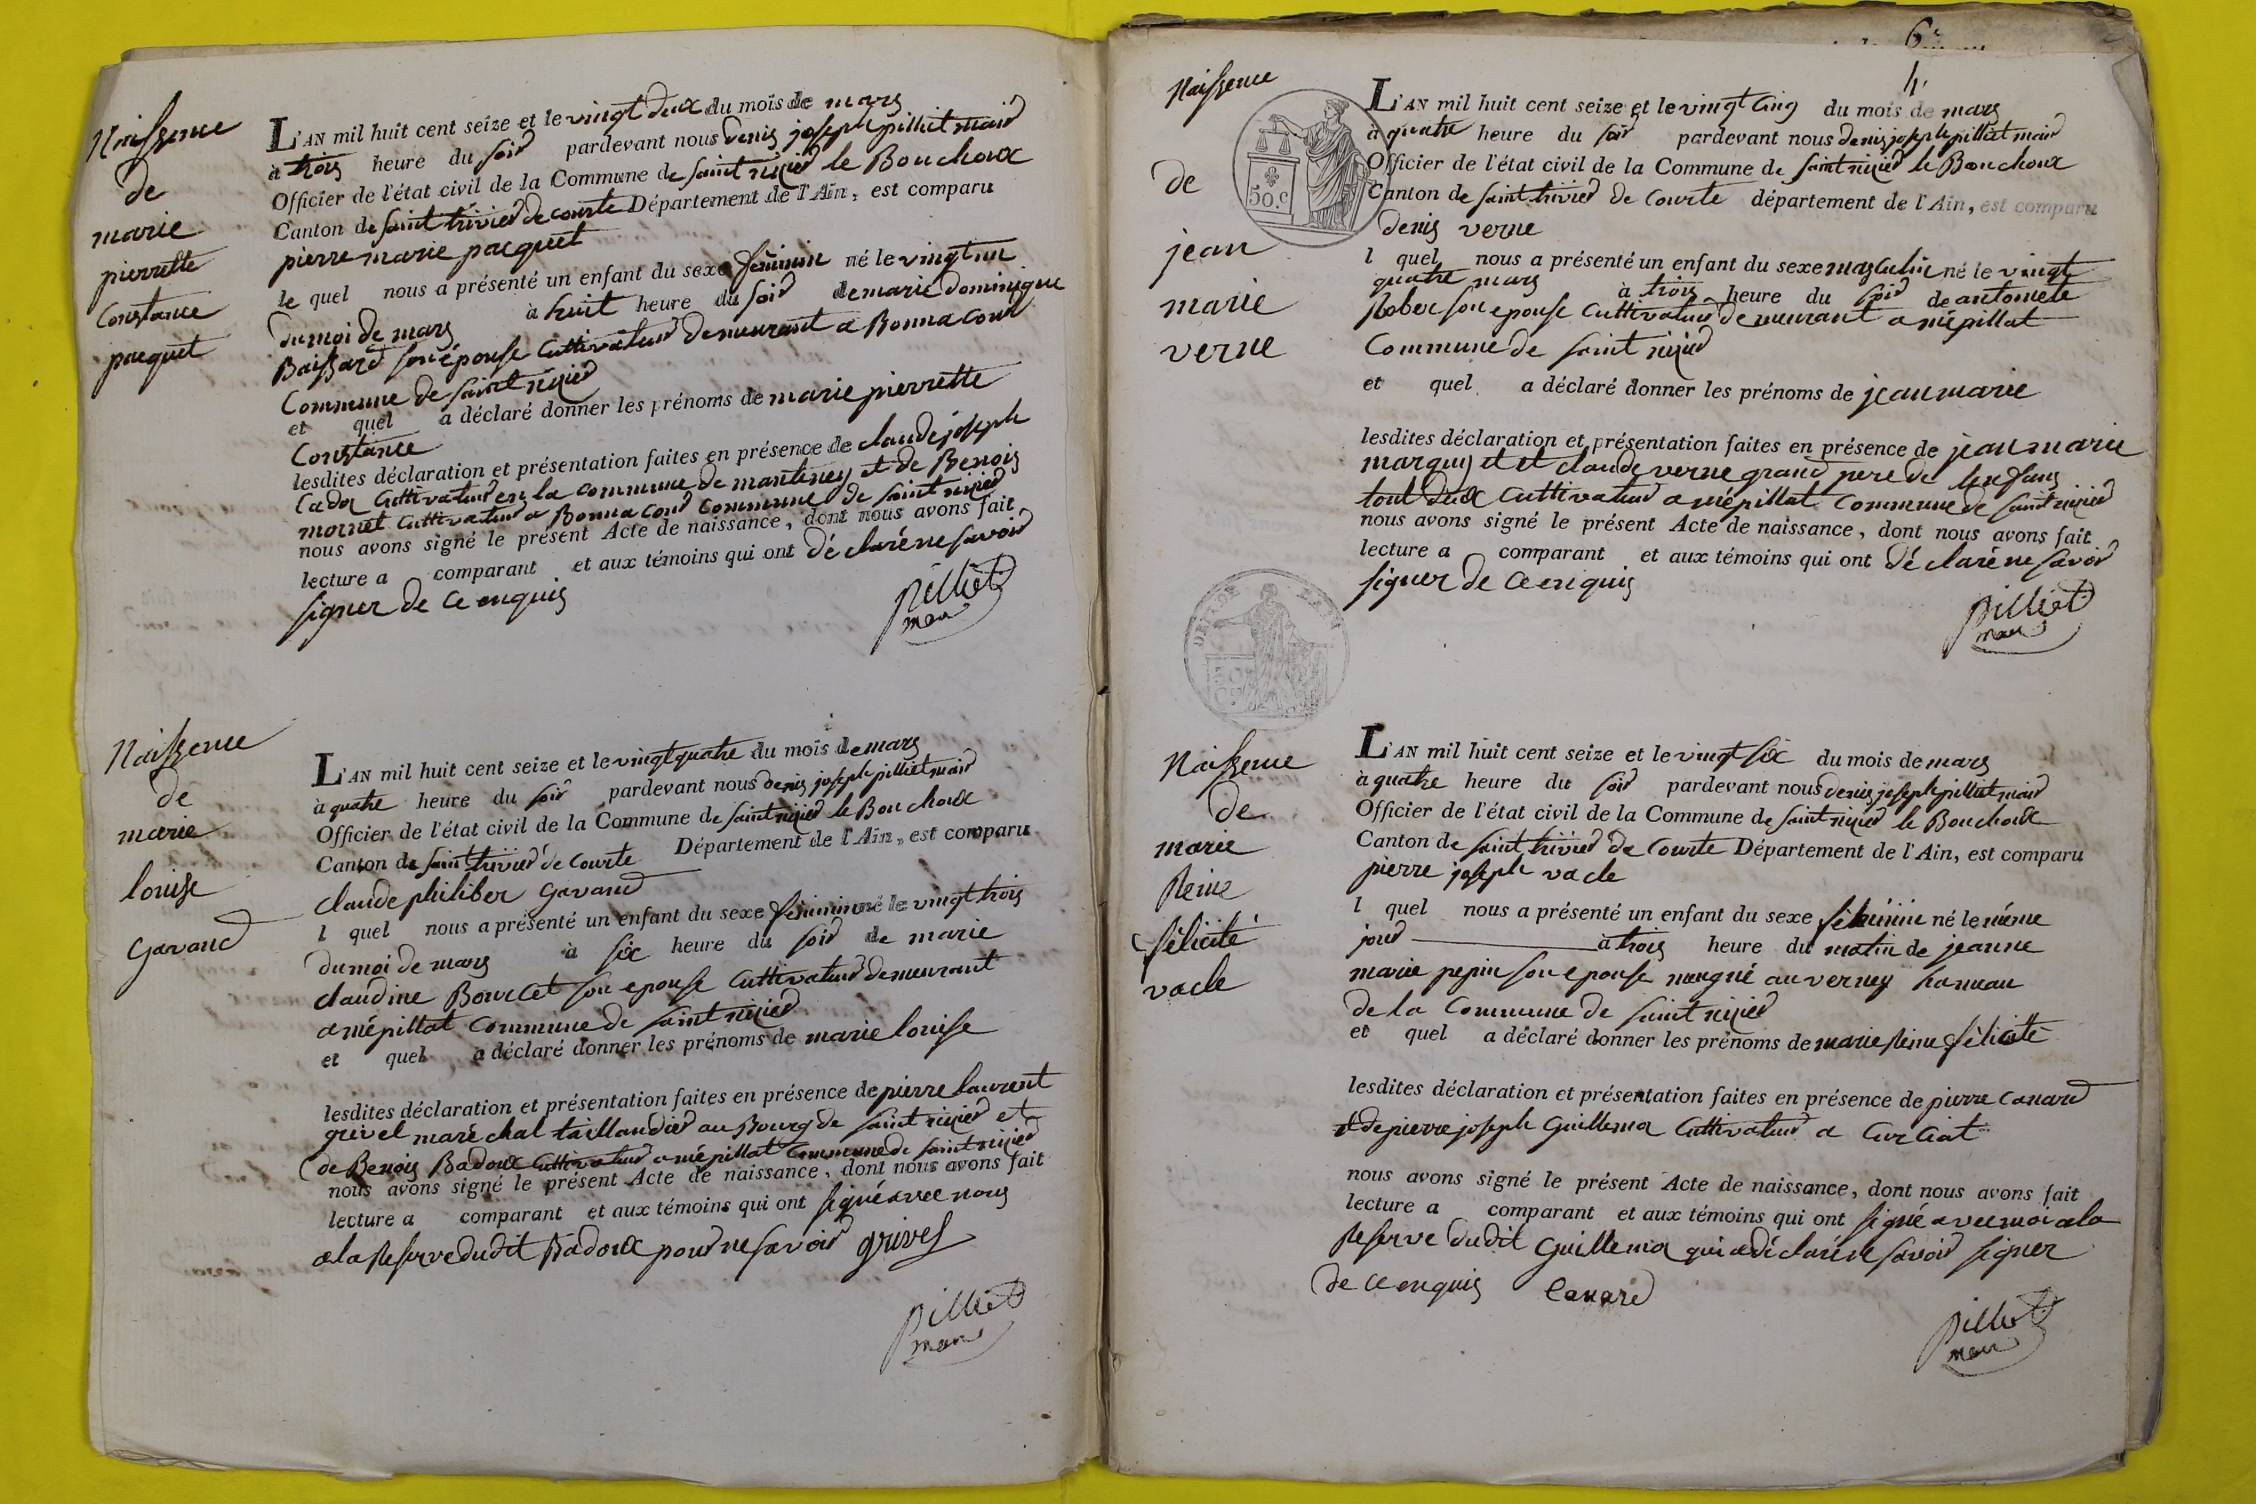 Naissence
de
marie
pierrette
Constance
pacquet
L'AN mil huit cent seize et le vingt deux du mois de mars
à trois heure du soir pardevant nous denis joseph pilliet mair
Officier de l'état civil de la Commune de saint nizier le Bouchoux
Canton de saint trivier de courte Département de l'Ain, est comparu
pierre marie pacquet
le quel nous a présenté un enfant du sexe féminin né le vingt un
du moi de mars à huit heure du soir de marie dominique
Baissard son épouse Cultivateur demeurant a Bonna cour
Commune de saint nizier
et quel a déclaré donner les prénoms de marie pierrette
Constance
lesdites déclaration et présentation faites en présence de claude joseph
Cadoz Cultivateur en la commune de mantiney et de Benois
mornet Cultivateur a Bonna cour Commune de saint nizier
nous avons signé le présent Acte de naissance, dont nous avons fait
lecture a comparant et aux témoins qui ont déclaré ne savoir
signer de ce enquis
pilliet
mair
Naissence
de
marie
louise
Gavand
L'AN mil huit cent seize et le vingt quatre du mois de mars
à quatre heure du soir pardevant nous denis joseph pilliet mair
Officier de l'état civil de la Commune de saint nizier le Bouchoux
Canton de saint trivier de courte Département de l'Ain, est comparu
claude philiber Gavand
l quel nous a présenté un enfant du sexe féminin né le vingt trois
du moi de mars à six heure du soir de marie
claudine Bourcet son epouse Cultivateur demeurant
a mépillat Commune de saint nizier
et quel a déclaré donner les prénoms de marie louise
lesdites déclaration et présentation faites en présence de pierre laurent
grivel maréchal taillandier au Bourg de saint nizier et
de Benois Badoux Cultivateur a mépillat Commune de saint nizier
nous avons signé le présent Acte de naissance, dont nous avons fait
lecture a comparant et aux témoins qui ont signé avec nous
a la Reserve dudit Badoux pour ne savoir grivel
pilliet
mair
4
Naissence
de
jean
marie
verne
50.c
L'AN mil huit cent seize et le vingt cinq du mois de mars
à quatre heure du soir pardevant nous denis joseph pilliet mair
Officier de l'état civil de la Commune de saint nizier le Bouchoux
Canton de saint trivier de courte département de l'Ain, est comparu
denis verne
l quel nous a présenté un enfant du sexe masculin né le vingt
quatre mars à trois heure du soir de antoinete
Rober son epouse Cultivateur demeurant a mépillat
Commune de saint nizier
et quel a déclaré donner les prénoms de jean marie
lesdites déclaration et présentation faites en présence de jean marie
marquis et et claude verne grand pere de lenfans
tout deux Cultivateur a mépillat Commune de saint nizier
nous avons signé le présent Acte de naissance, dont nous avons fait
lecture a comparant et aux témoins qui ont déclaré ne savoir
signer de ce enquis
pilliet
mair
Naissence
de
marie
Reine
félicité
vacle
L'AN mil huit cent seize et le vingt six du mois de mars
à quatre heure du soir pardevant nous denis joseph pilliet mair
Officier de l'état civil de la Commune de saint nizier le Bouchoux
Canton de saint trivier de courte Département de l'Ain, est comparu
pierre joseph vacle
l quel nous a présenté un enfant du sexe féminin né le méme
jour à trois heure du matin de jeanne
marie pepin son epouse au verney hameau
de la Commune de saint nizier
et quel a déclaré donner les prénoms de marie Reine félicité
lesdites déclaration et présentation faites en présence de pierre Canard
et de pierre joseph Guillemoz Cultivateur a Curciat
nous avons signé le présent Acte de naissance, dont nous avons fait
lecture a comparant et aux témoins qui ont signé avec moi a la
Reserve dudit Guillemoz qui a déclaré ne savoir signer
de ce enquis Canard
pilliet
mair